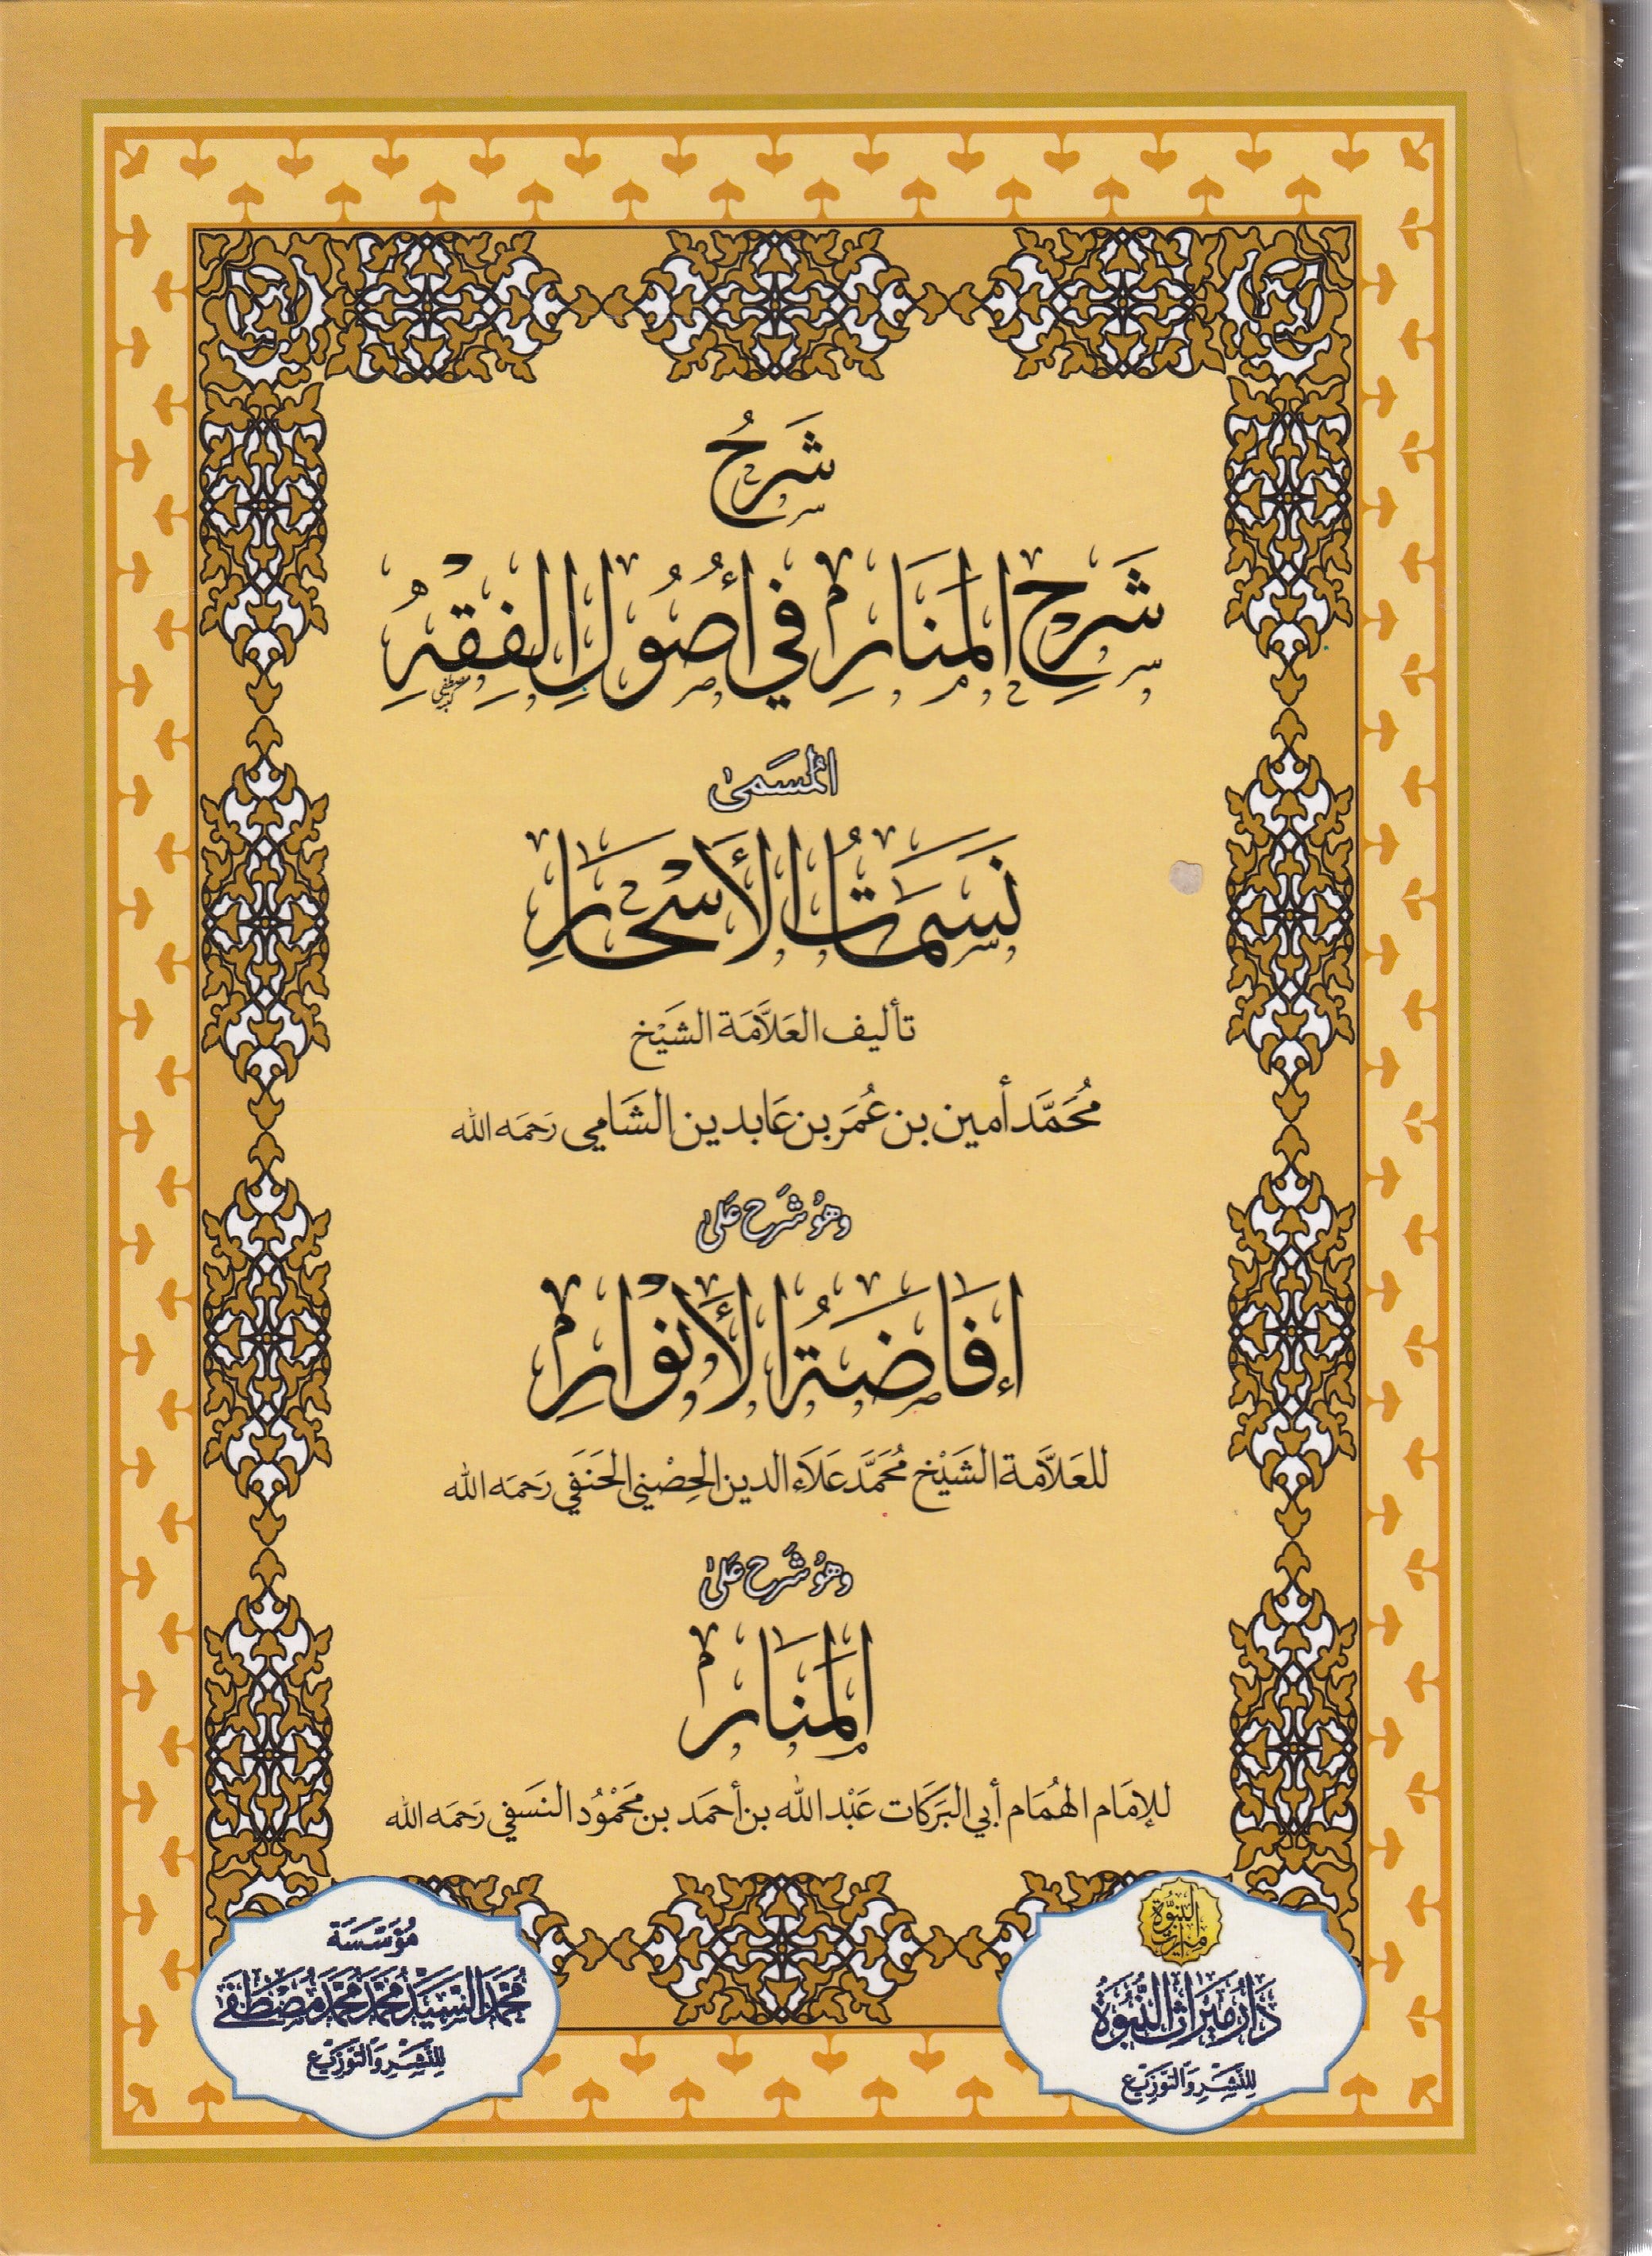 شَرحُ
شَرحِ المَنَارِ في أُصُولِ الفِقْهِ
المُسَمى
نَسَمَاتُ الأَسْحَارِ
تأليف العَلاَّمَة الشَيْخ
مُحَمَّد أمين بن عُمَر بن عَابدين الشَامي رَحمَه الله
وهُو شَرح عَلى
إفَاضَةُ الأَنْوارِ
للعَلاَّمَة الشَيْخ مُحَمَّد عَلَاء الدين الحِصْني الحَنَفي رَحمَه الله
وهُو شَرح عَلى
المَنَار
للإمَام الهُمَام أبي البَرَكَات عَبْد الله بن أحمَد بن مَحمُود النَسَفي رَحمَه الله
ميراث النبوة
دَارُ مِيرَاثِ النُّبُوَّة
لِلنَّشِرِ وَالتَّوْزِيْع
مُؤَسَّسَة
مُحَمَّد السَّيِّد مُحَمَّد مُحَمَّد مُصْطَفَى
لِلنَّشِرِ وَالتَّوْزِيْع